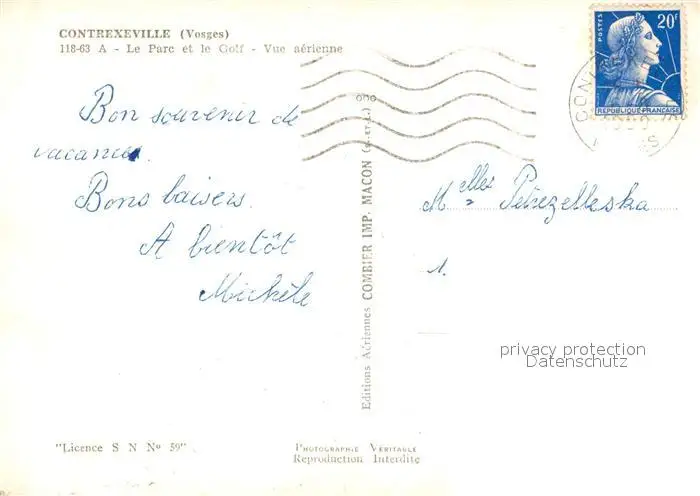 CONTREXEVILLE (Vosges)
118-63 A - Le Parc et le Golf - Vue aérienne
Bon souvenir de
vacances.
Bons baisers.
A bientôt
Michèle
Editions Aériennes COMBIER IMP. MACON (S.-ET-L.)
"Licence S N Nº 59"
PHOTOGRAPHIE VÉRITABLE
Reproduction Interdite
POSTES
20F
REPUBLIQUE FRANÇAISE
Melles Petrezelleska
1.
privacy protection
Datenschutz